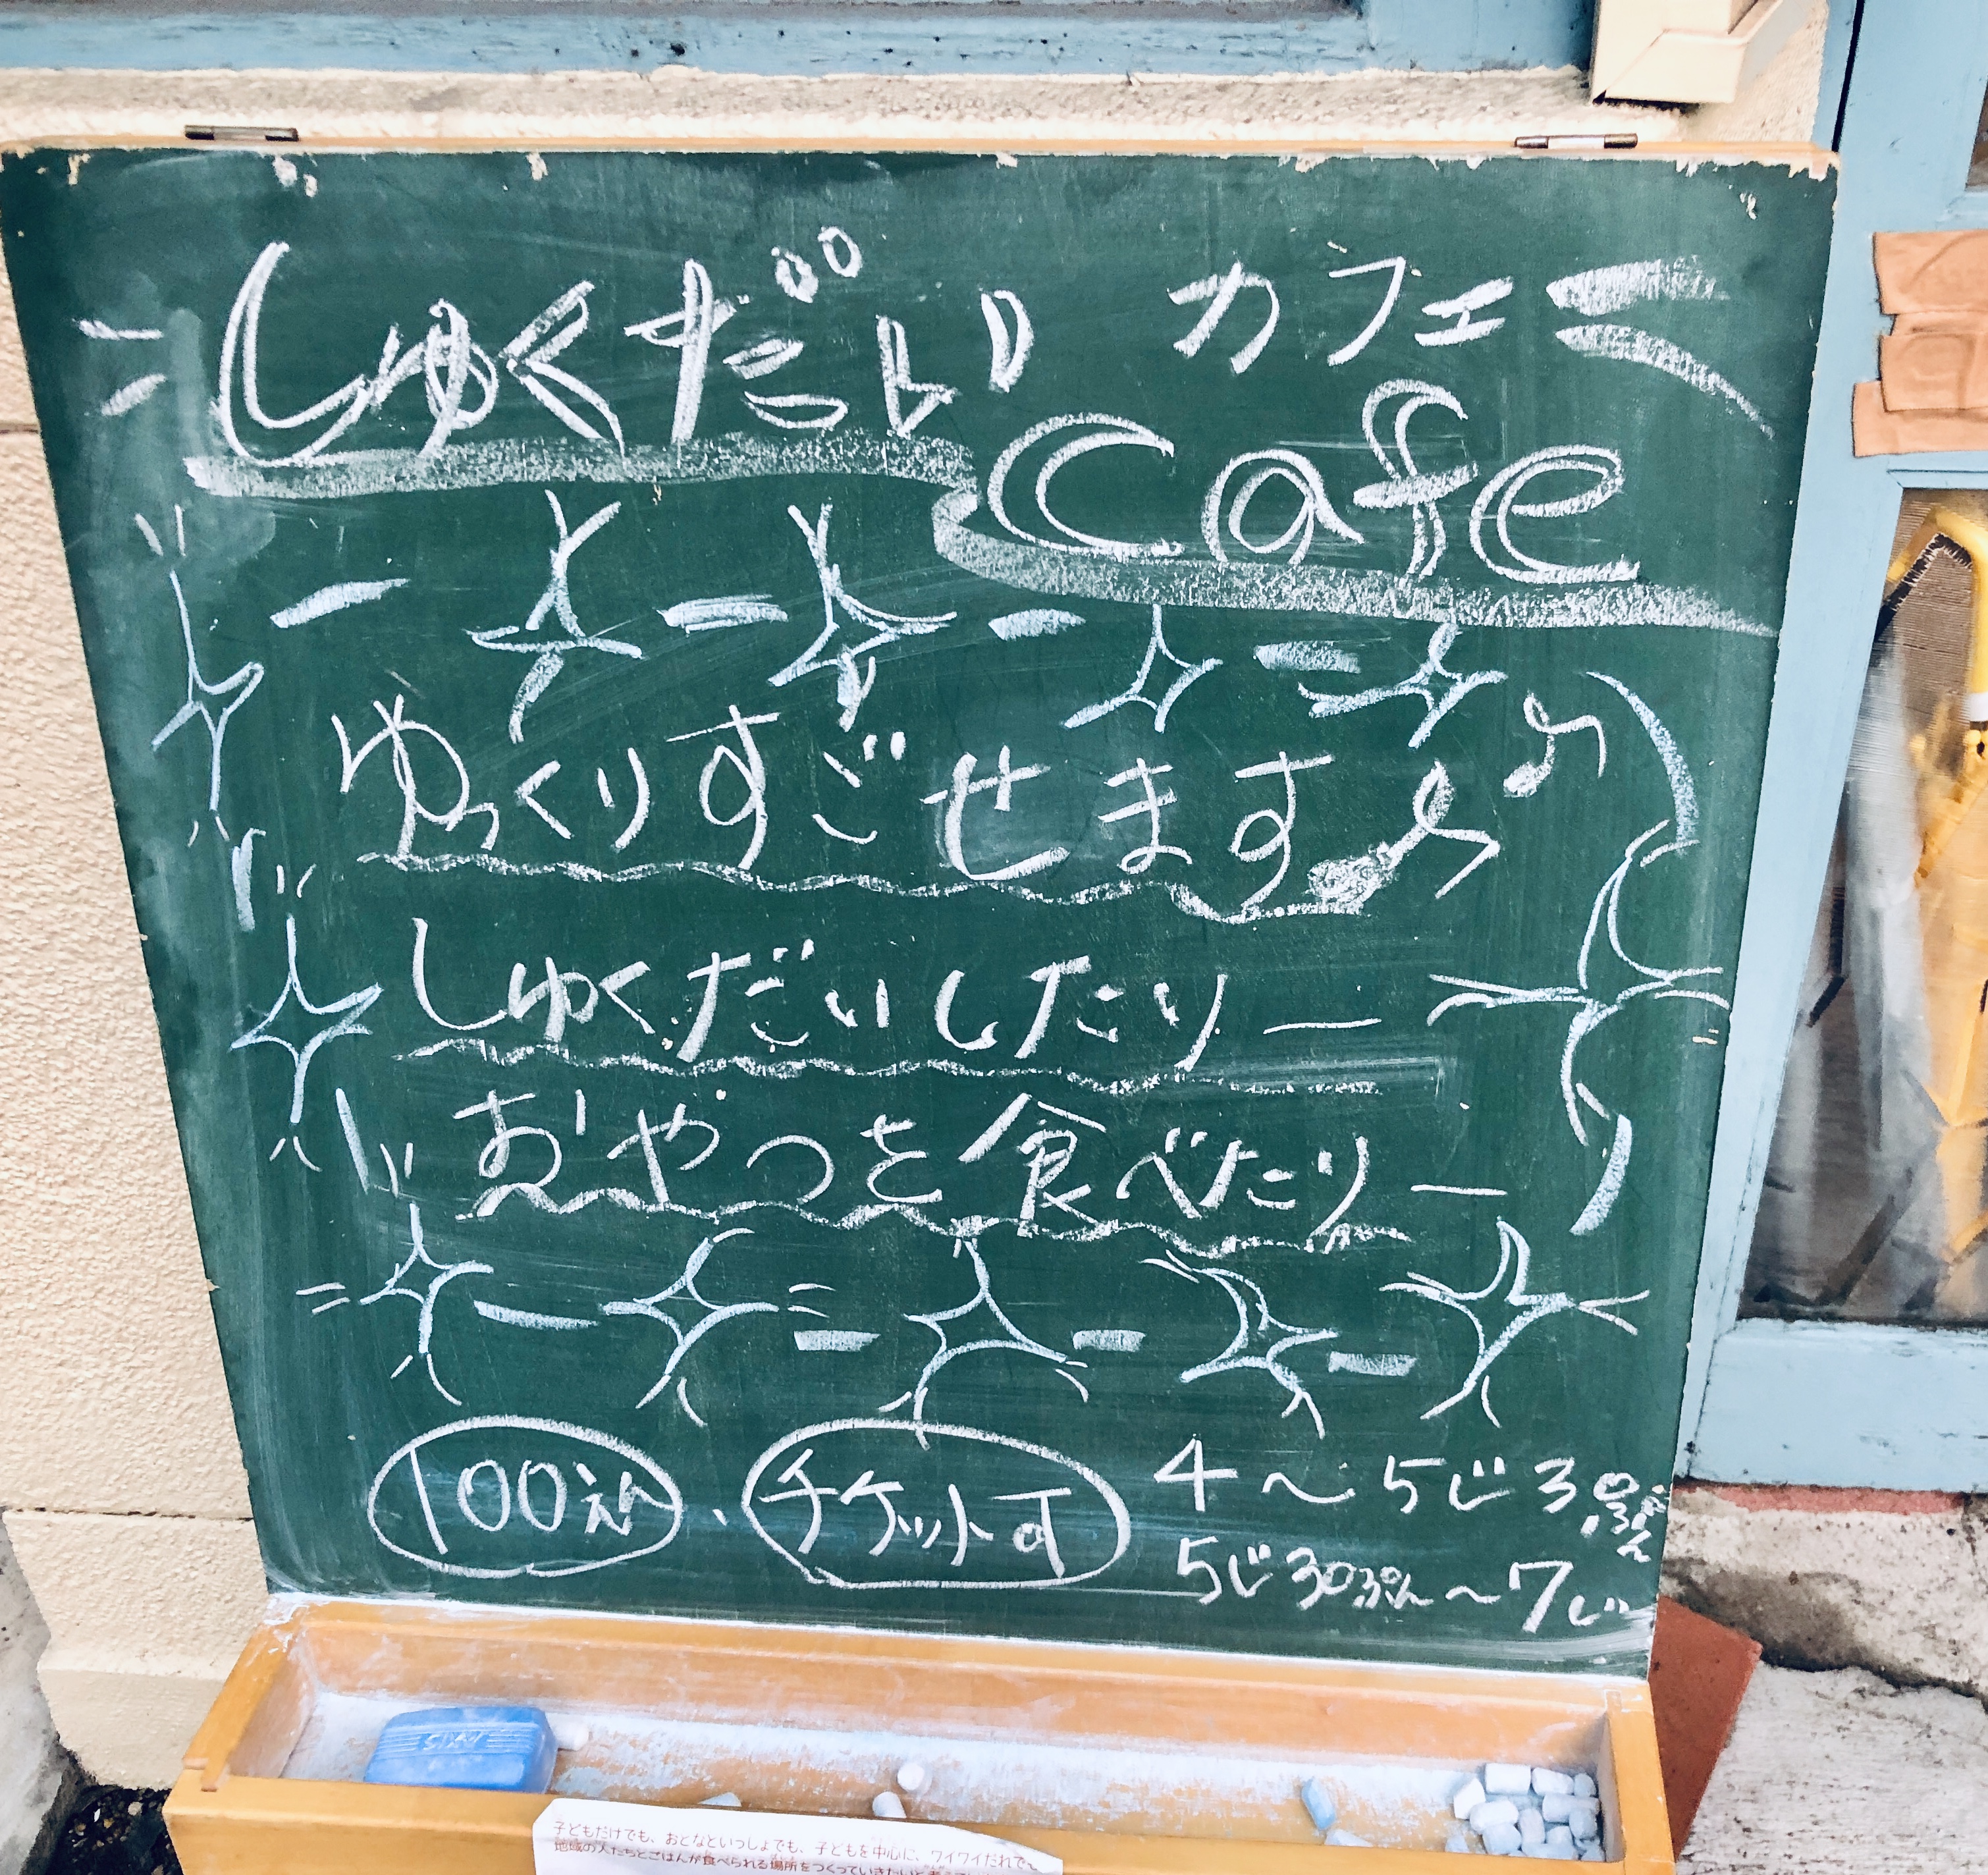 しゅくだい カフェ
Cafe
ゆっくりすごせます♪♪
しゅくだいしたりー
おやつを食べたりー
100えん、チケット可
4〜5じ30ぷん
5じ30ぷん〜7じ
子どもだけでも、おとなといっしょでも、子どもを中心に、ワイワイだれでも
地域の人たちとごはんが食べられる場所をつくっていきたいと